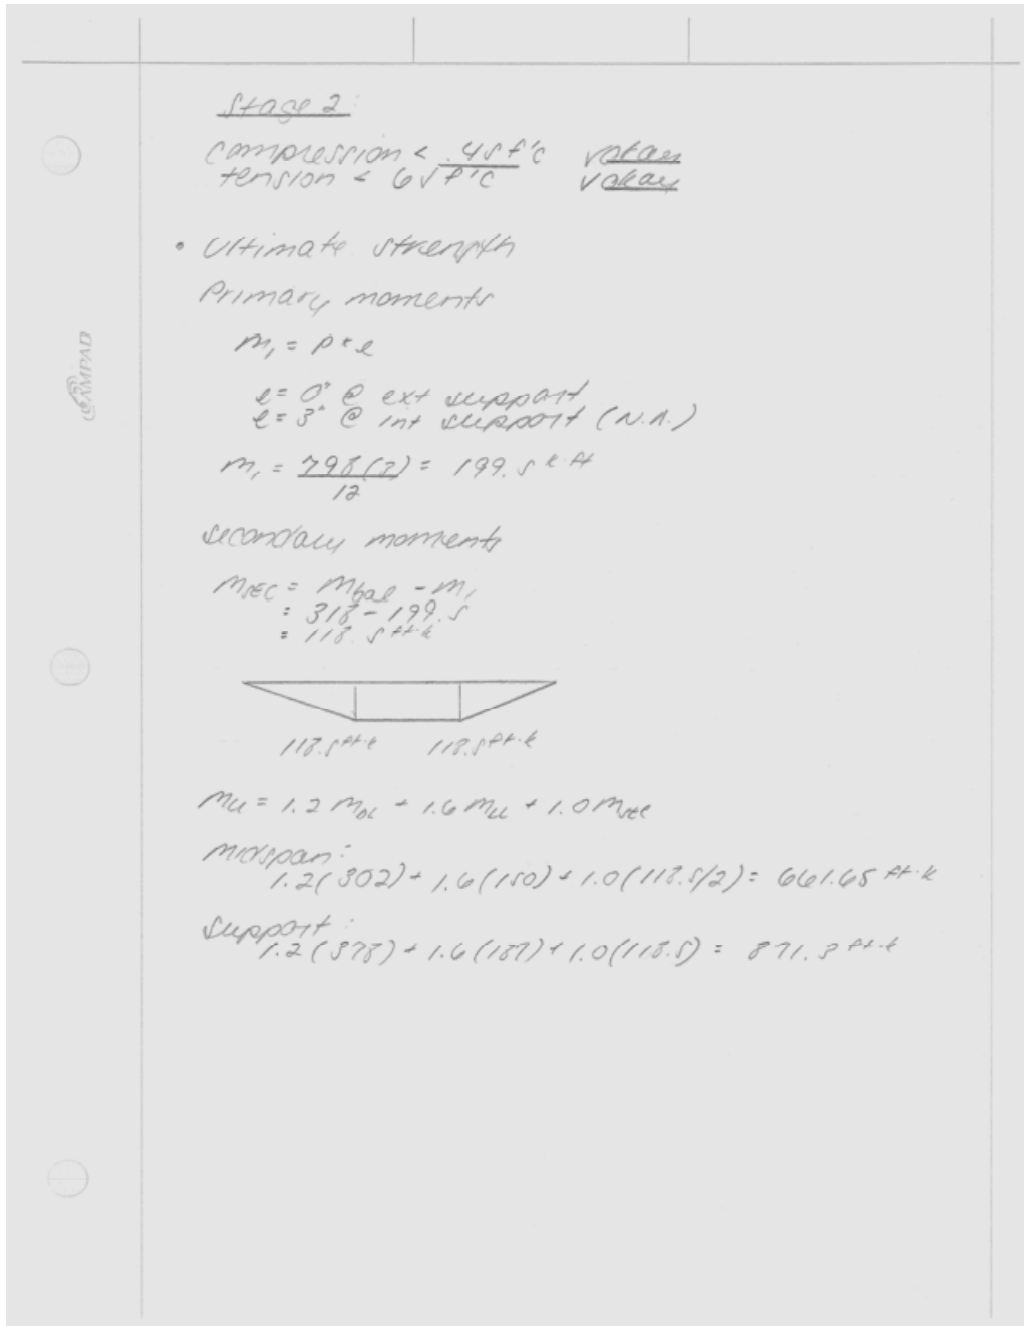 Stage 2:
compression < .45 f'c √okay
tension < 6√f'c √okay
• Ultimate strength
Primary moments
M₁ = P * e
e = 0" @ ext support
e = 3" @ int support (N.A.)
M₁ = 798(3) = 199.5 k·ft
12
Secondary moments
MSEC = Mbal - M₁
= 318 - 199.5
= 118.5 ft·k
118.5 ft·k 118.5 ft·k
Mu = 1.2 MDL + 1.6 MLL + 1.0 Msec
Midspan:
1.2(302) + 1.6(150) + 1.0(118.5/2) = 661.65 ft·k
Support:
1.2(378) + 1.6(187) + 1.0(118.5) = 871.3 ft·k
AMPAD